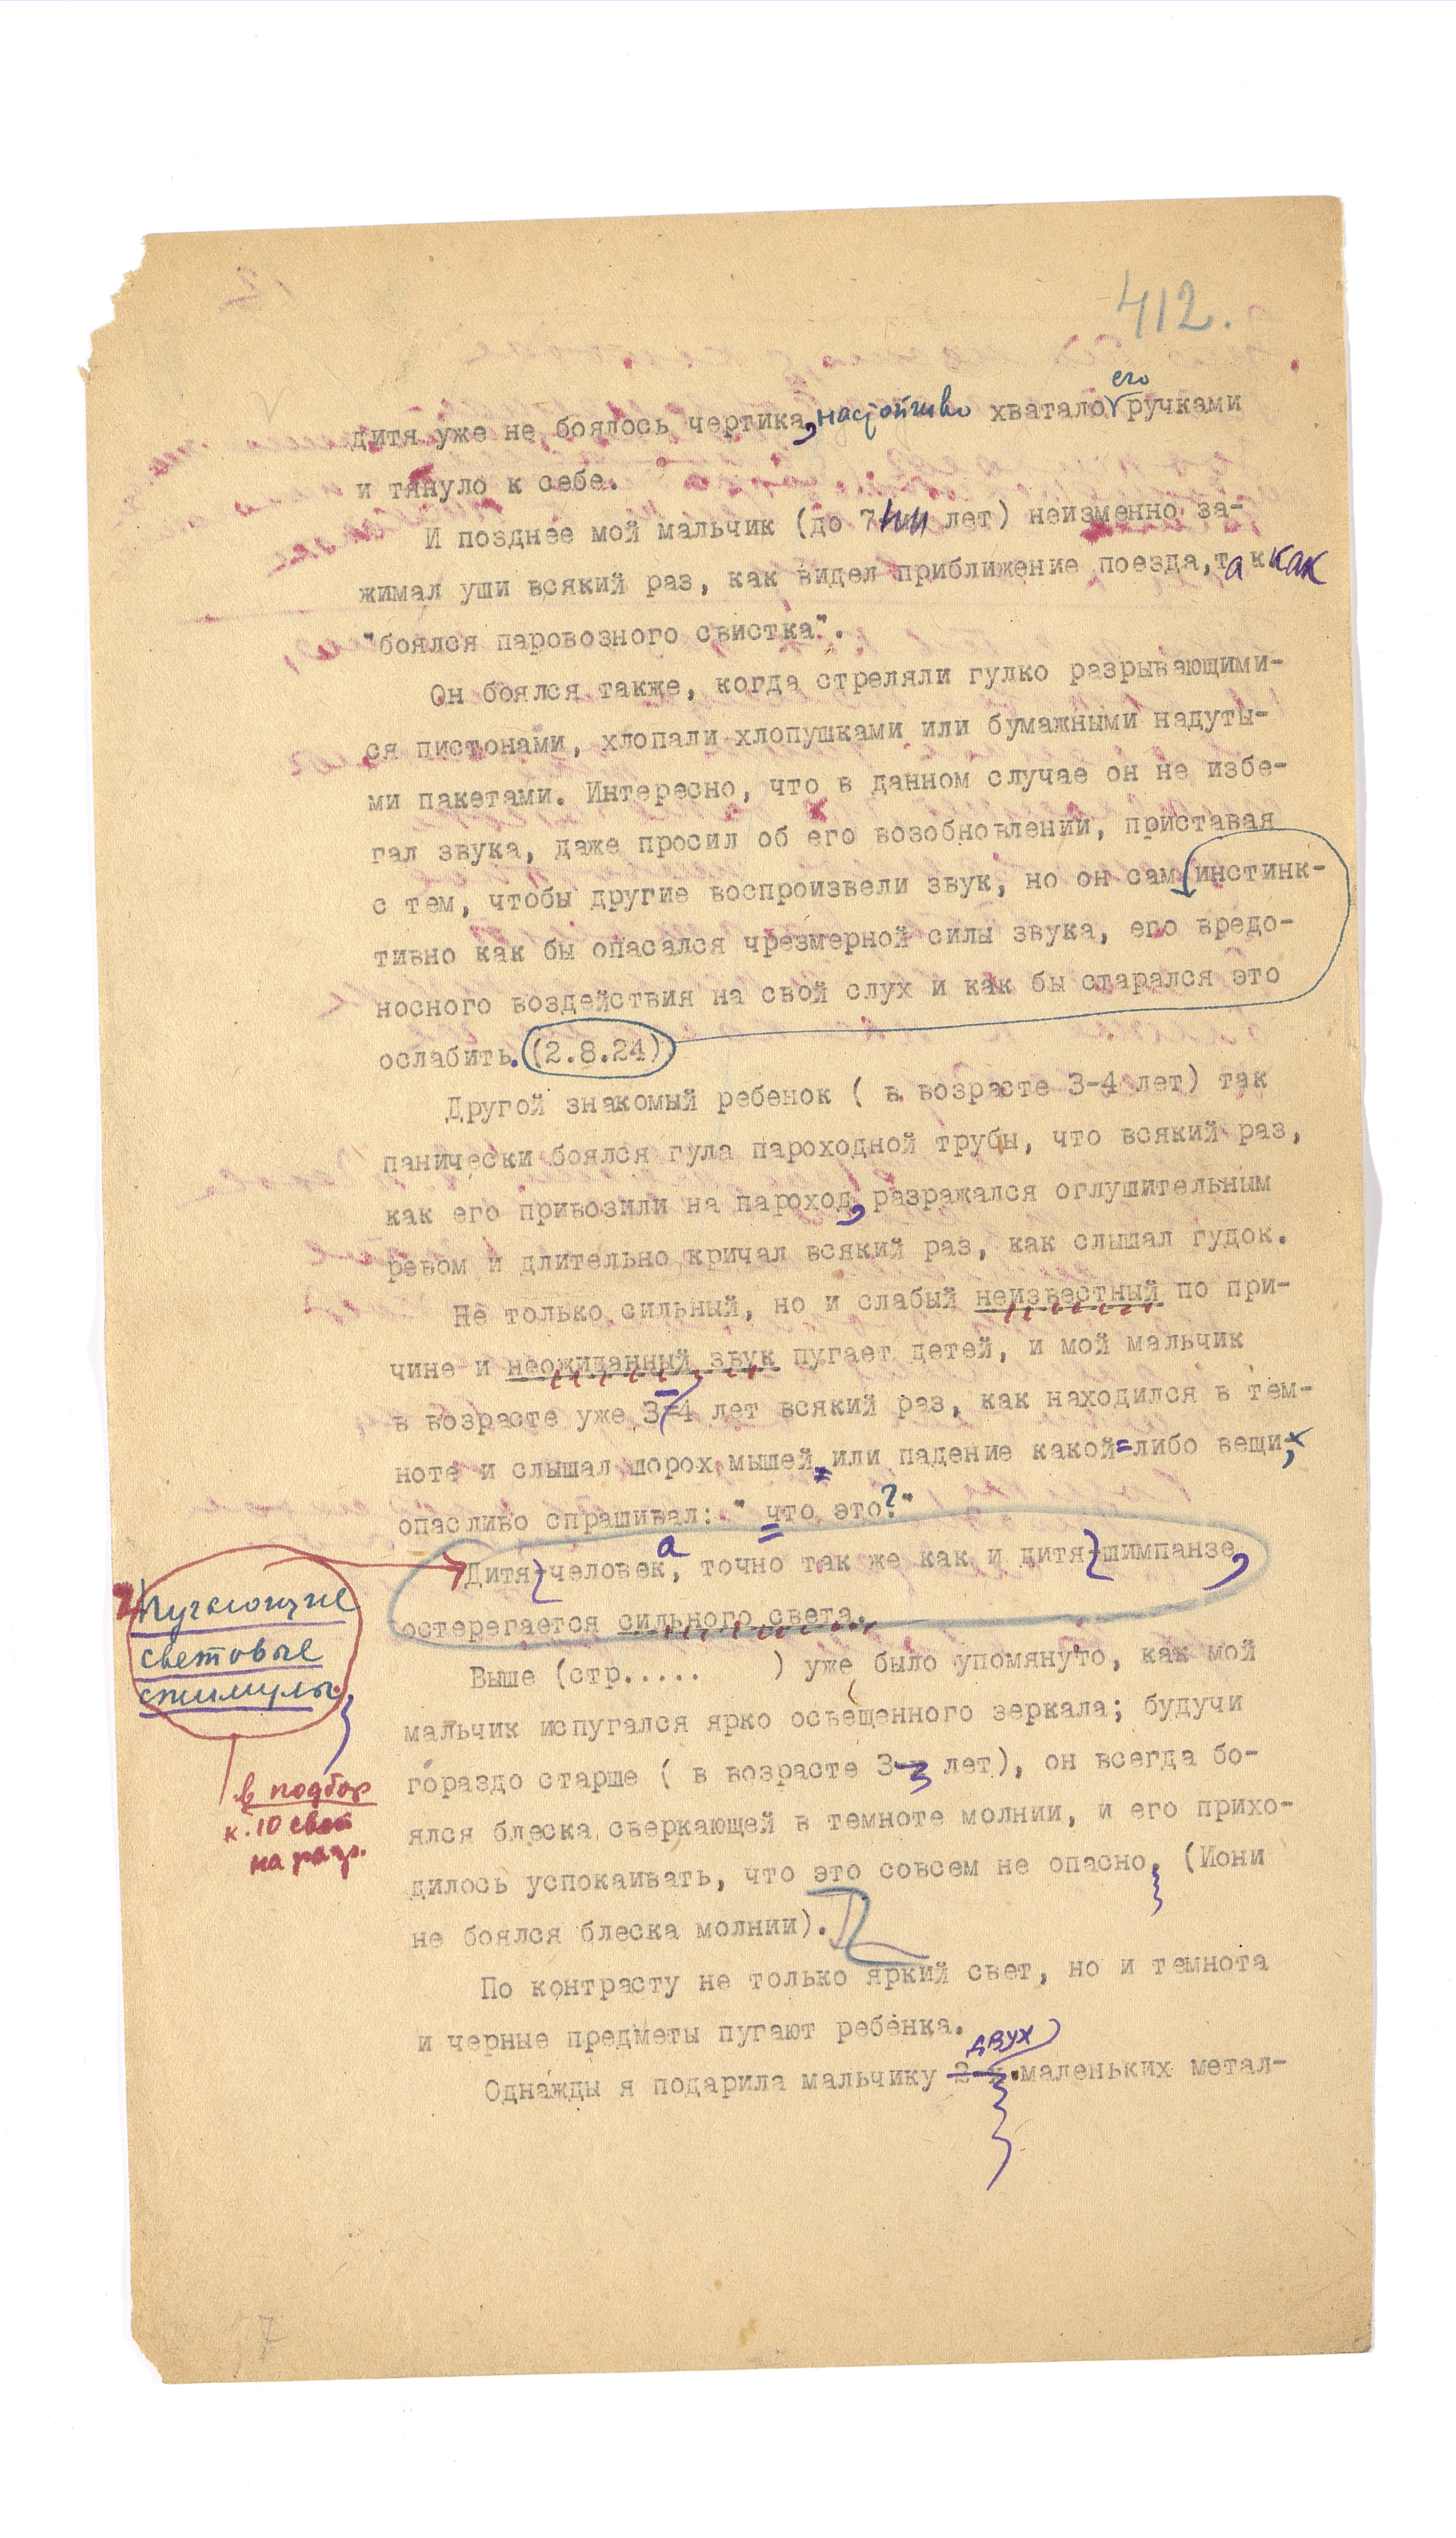 412.
его
дитя уже не боялось чертика, настойчиво хватало ручками
и тянуло к себе.
И позднее мой мальчик (до 7 лет) неизменно за-
жимал уши всякий раз, как видел приближение поезда, так как
"боялся паровозного свистка".
Он боялся также, когда стреляли гулко разрывающими-
ся пистонами, хлопали хлопушками или бумажными надуты-
ми пакетами. Интересно, что в данном случае он не избе-
гал звука, даже просил об его возобновлении, приставая
с тем, чтобы другие воспроизвели звук, но он сам инстинк-
тивно как бы опасался чрезмерной силы звука, его вредо-
носного воздействия на свой слух и как бы старался это
ослабить. (2.8.24)
Другой знакомый ребенок ( в возрасте 3-4 лет) так
панически боялся гула пароходной трубы, что всякий раз,
как его привозили на пароход, разражался оглушительным
ревом и длительно кричал всякий раз, как слышал гудок.
Не только сильный, но и слабый неизвестный по при-
чине и неожиданный звук пугает детей, и мой мальчик
в возрасте уже 3-4 лет всякий раз, как находился в тем-
ноте и слышал шорох мышей или падение какой-либо вещи,
опасливо спрашивал: " что это?"
Дитя-человека, точно так же как и дитя-шимпанзе,
остерегается сильного света.
Пугающие
световые
стимулы.
в подбор
к. 10 свет
на разр.
Выше (стр..... ) уже было упомянуто, как мой
мальчик испугался ярко освещенного зеркала; будучи
гораздо старше ( в возрасте 3 лет), он всегда бо-
ялся блеска сверкающей в темноте молнии, и его прихо-
дилось успокаивать, что это совсем не опасно, (Иони
не боялся блеска молнии).
По контрасту не только яркий свет, но и темнота
и черные предметы пугают ребенка.
двух
Однажды я подарила мальчику маленьких метал-